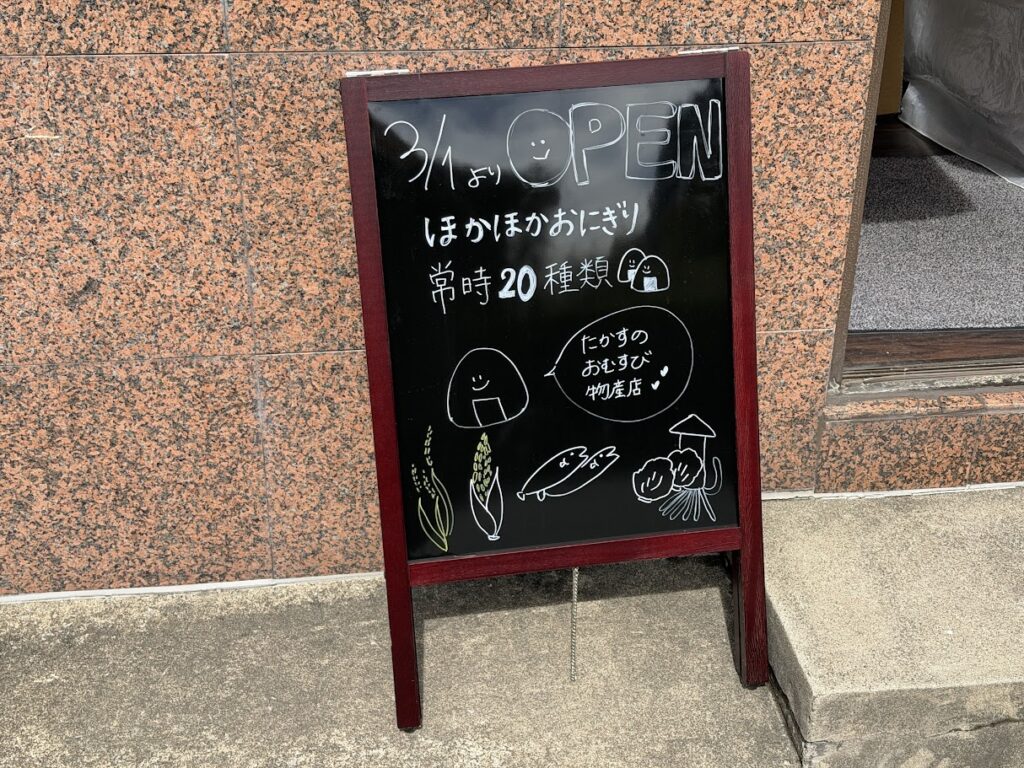 3/1 より OPEN
ほかほかおにぎり
常時20種類
たかすの
おむすび
物産店